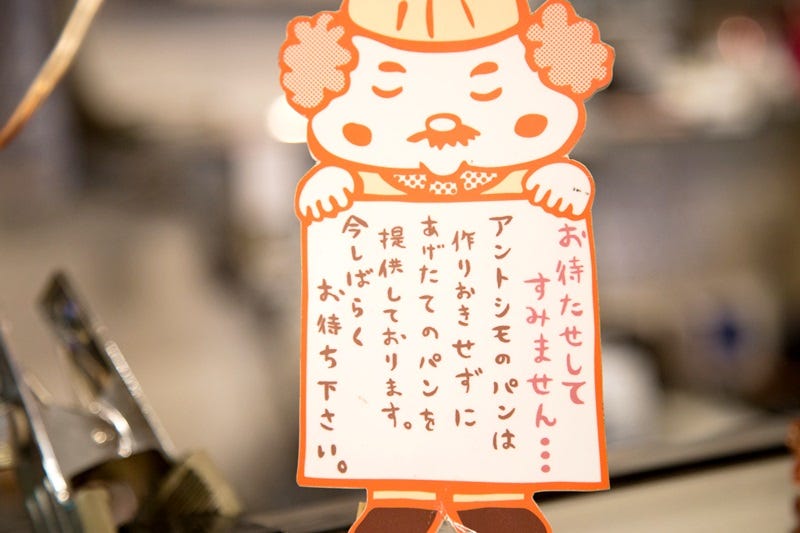 お待たせして
すみません…
アントシモのパンは
作りおきせずに
あげたてのパンを
提供しております。
今しばらく
お待ち下さい。